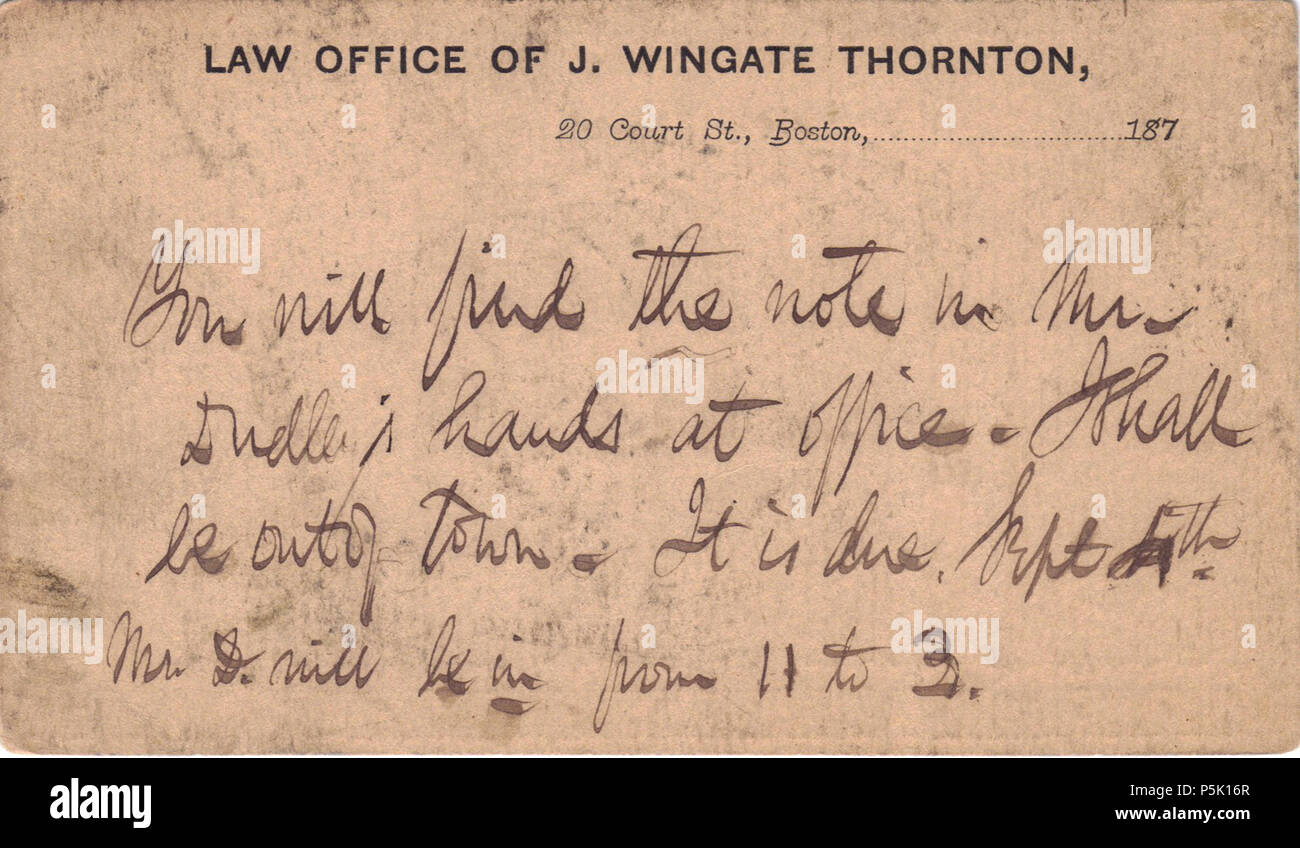 LAW OFFICE OF J. WINGATE THORNTON,
20 Court St., Boston,..............................187
You will find the note in Mr.
Dudley's hands at office - I shall
be out of town - It is due Sept th
Mr. D. will be in from 11 to 3.
a alamy stock photo
alamy
Image ID: P5K16R
www.alamy.com